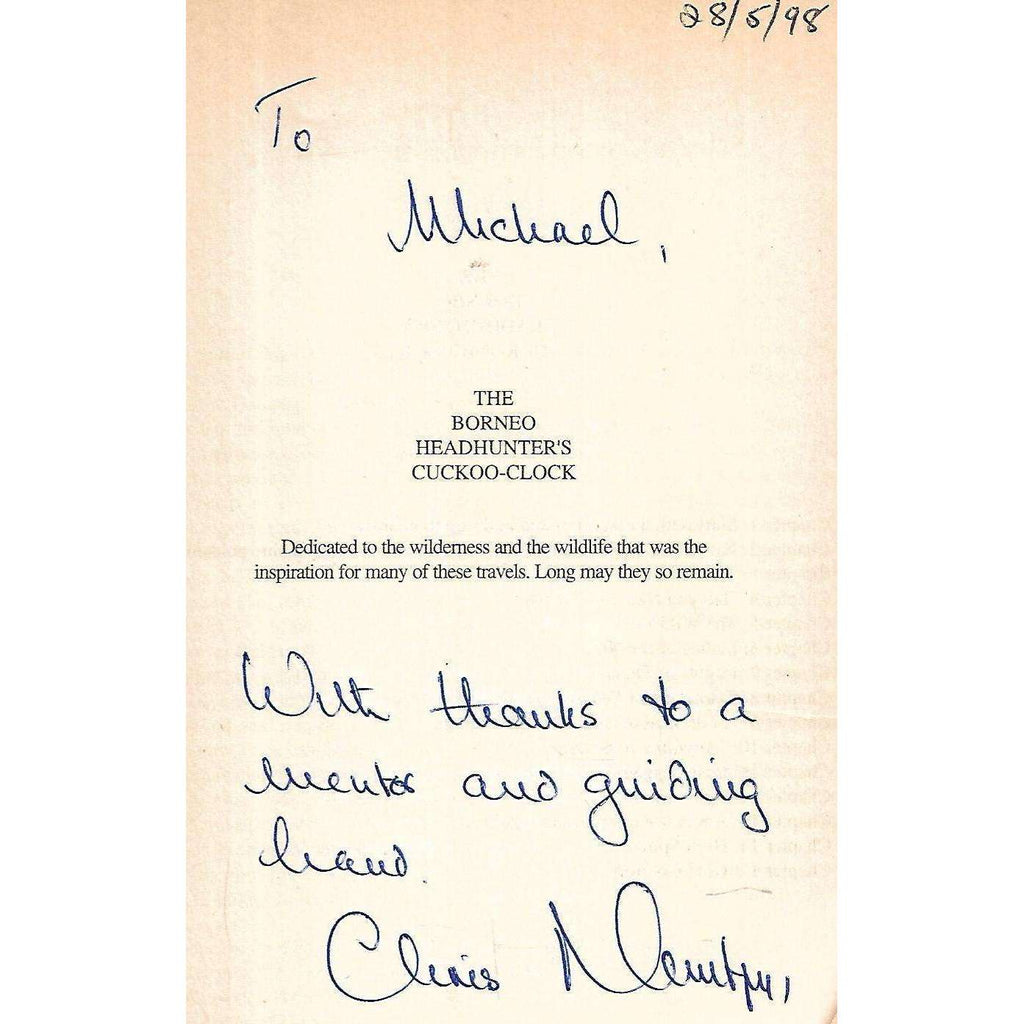 28/5/98
To
Michael,
THE
BORNEO
HEADHUNTER'S
CUCKOO-CLOCK
Dedicated to the wilderness and the wildlife that was the
inspiration for many of these travels. Long may they so remain.
With thanks to a
mentor and guiding
hand.
Chris